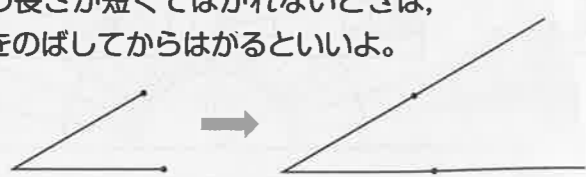 の長さが短くてはかれないときは,
をのばしてからはかるといいよ。